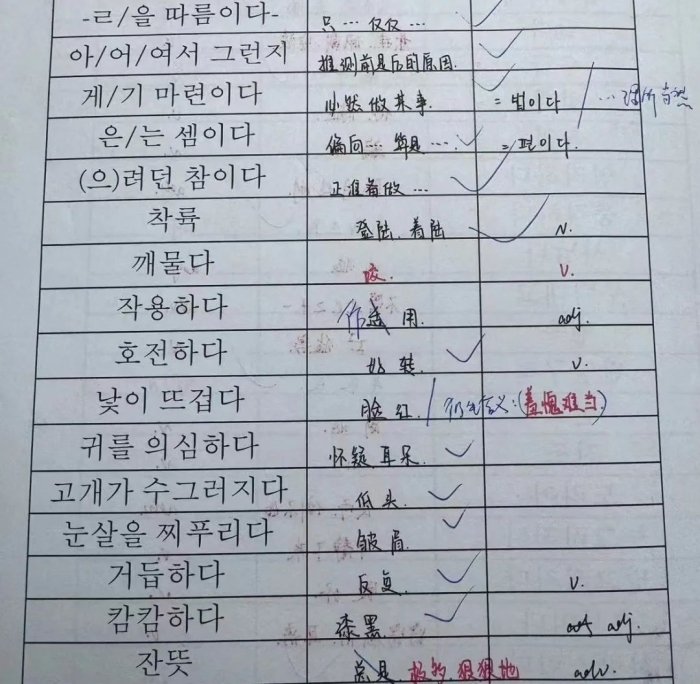 -ㄹ/을 따름이다- 只…仅仅…
아/어/여서 그런지 推测前是后的原因.
게/기 마련이다 必然做某事. =법이다 /
은/는 셈이다 偏向…算是…. =편이다.
(으)려던 참이다 正准备做…
착륙 登陆 着陆 N.
깨물다 咬. V.
작용하다 作 用. adj.
호전하다 好转. V.
낯이 뜨겁다 脸红 / 引申含义:(羞愧难当)
귀를 의심하다 怀疑耳朵.
고개가 수그러지다 低头.
눈살을 찌푸리다 皱眉.
거듭하다 反复. V.
캄캄하다 漆黑. adj.
잔뜻 总是. 狠狠地 adv.